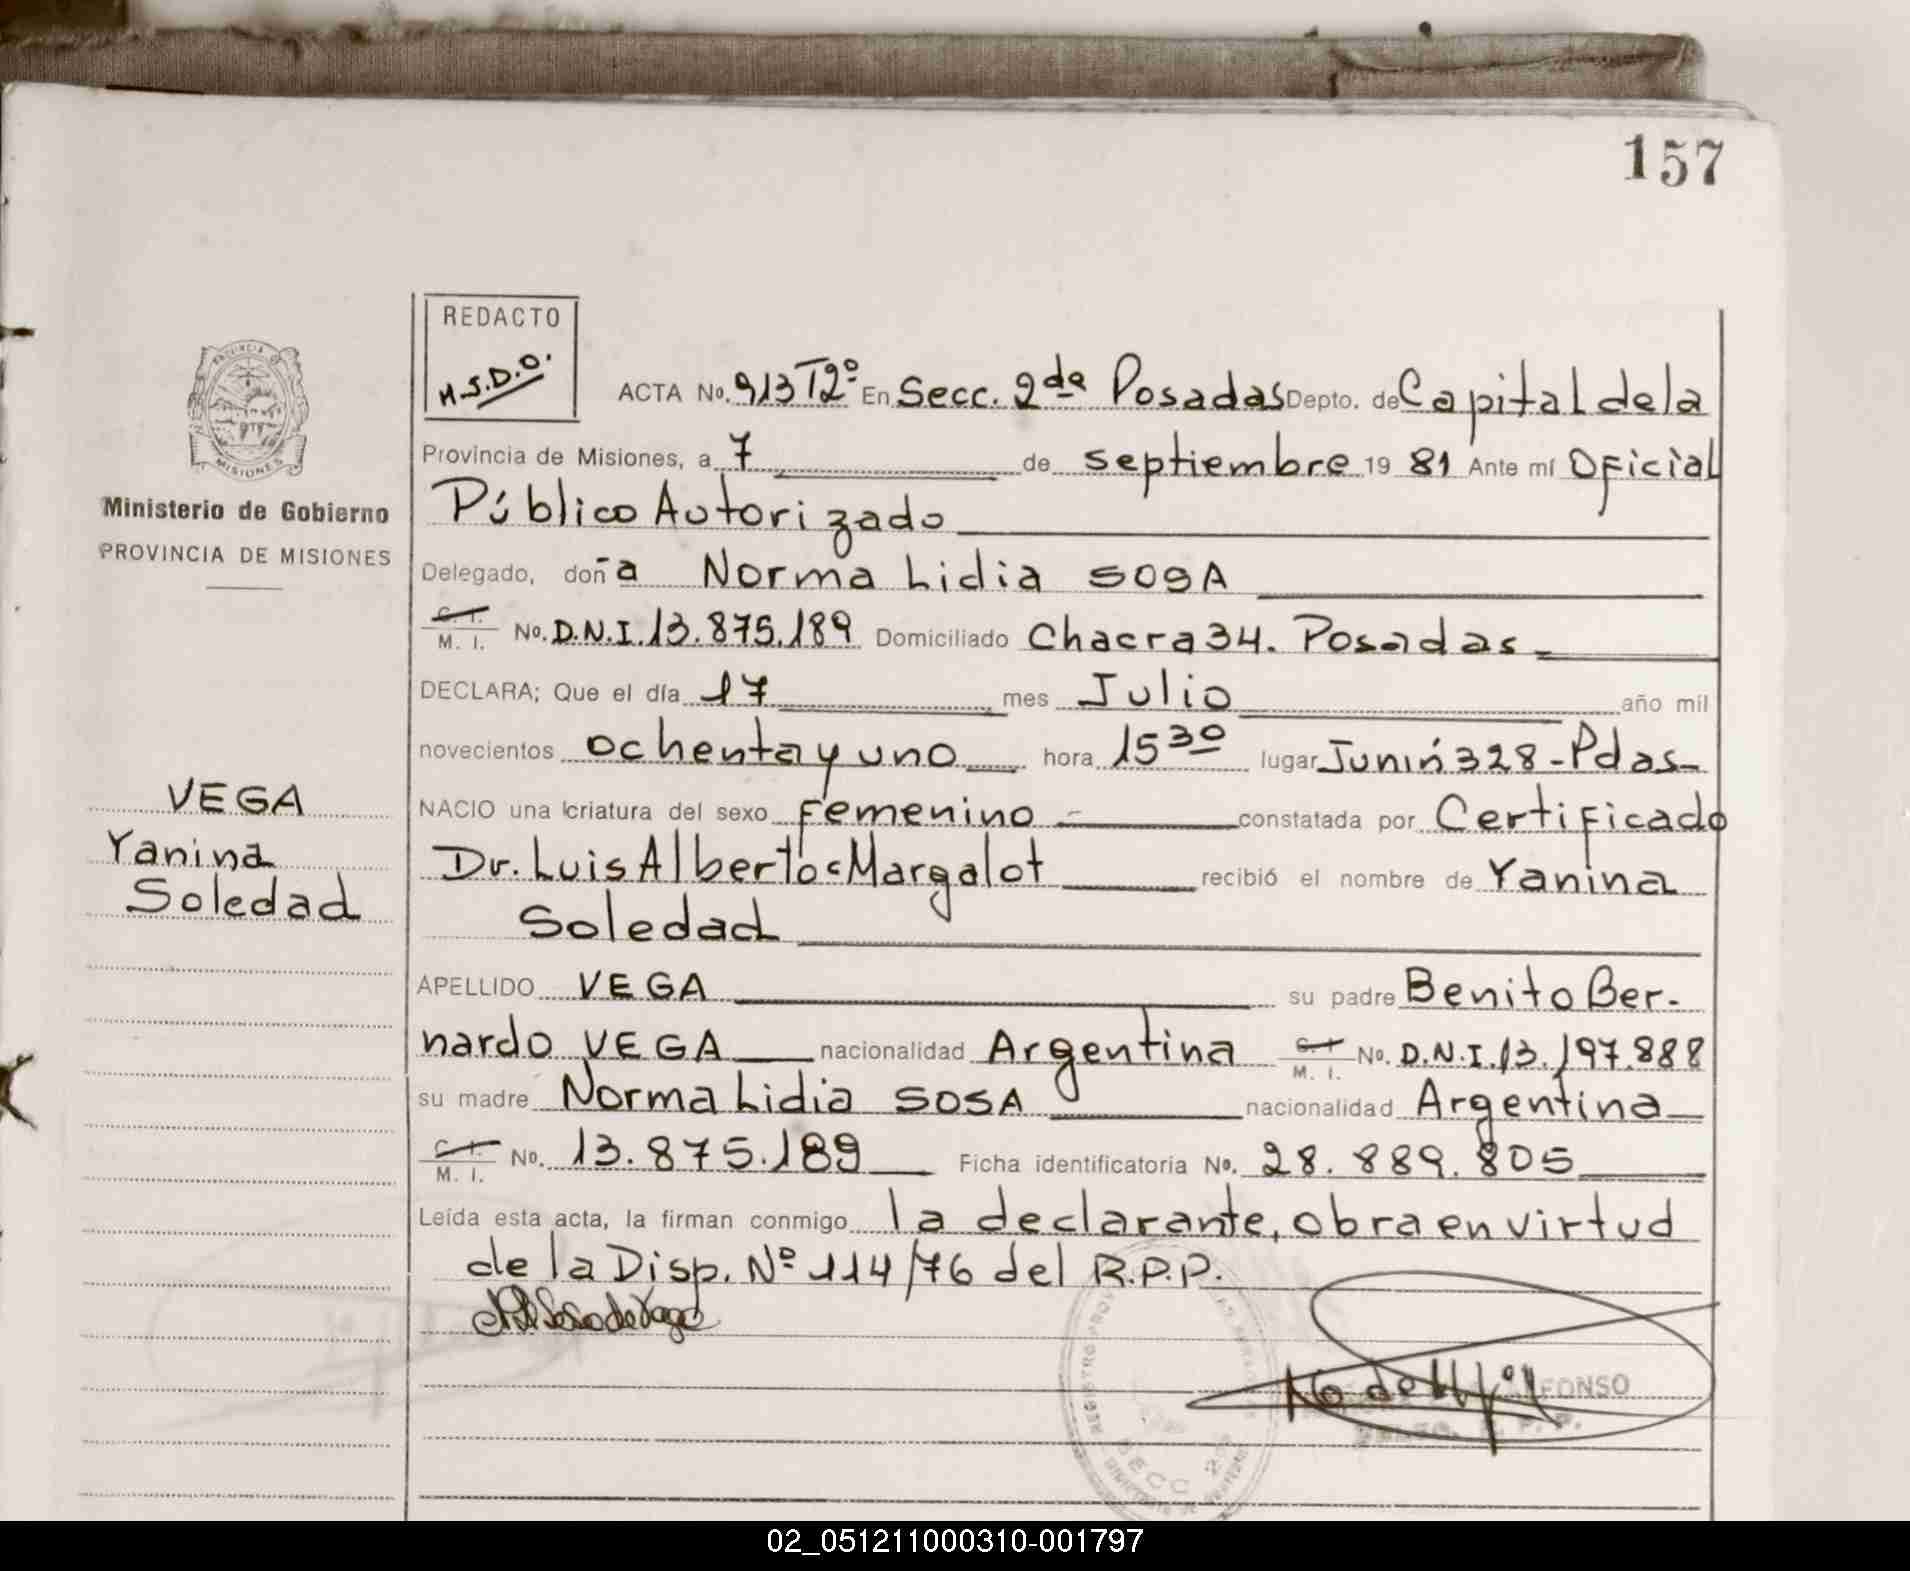 157
REDACTO
M.S.D.O.
ACTA No. 913 T2º En Secc. 2da Posadas Depto. de Capital de la
Provincia de Misiones, a 7 de septiembre 19 81 Ante mí Oficial
Público Autorizado
Delegado, doña Norma Lidia SOSA
C. I.
M. I. No. D.N.I. 13.875.189 Domiciliado Chacra 34. Posadas
DECLARA; Que el día 17 mes Julio año mil
novecientos ochenta y uno hora 15 30 lugar Junín 328 - Pdas-
NACIO una criatura del sexo Femenino constatada por Certificado
Dr. Luis Alberto Margalot recibió el nombre de Yanina
Soledad
APELLIDO VEGA su padre Benito Ber-
nardo VEGA nacionalidad Argentina C. I. M. I. No. D.N.I. 13.197.888
su madre Norma Lidia SOSA nacionalidad Argentina
C. I.
M. I. No. 13.875.189 Ficha identificatoria No. 28.889.805
Leída esta acta, la firman conmigo la declarante, obra en virtud
de la Disp. Nº 114/76 del R.P.P.
PROVINCIA DE
MISIONES
Ministerio de Gobierno
PROVINCIA DE MISIONES
VEGA
Yanina
Soledad
Sosa de Vega
REGISTRO PROV
SECC 2
02_051211000310-001797